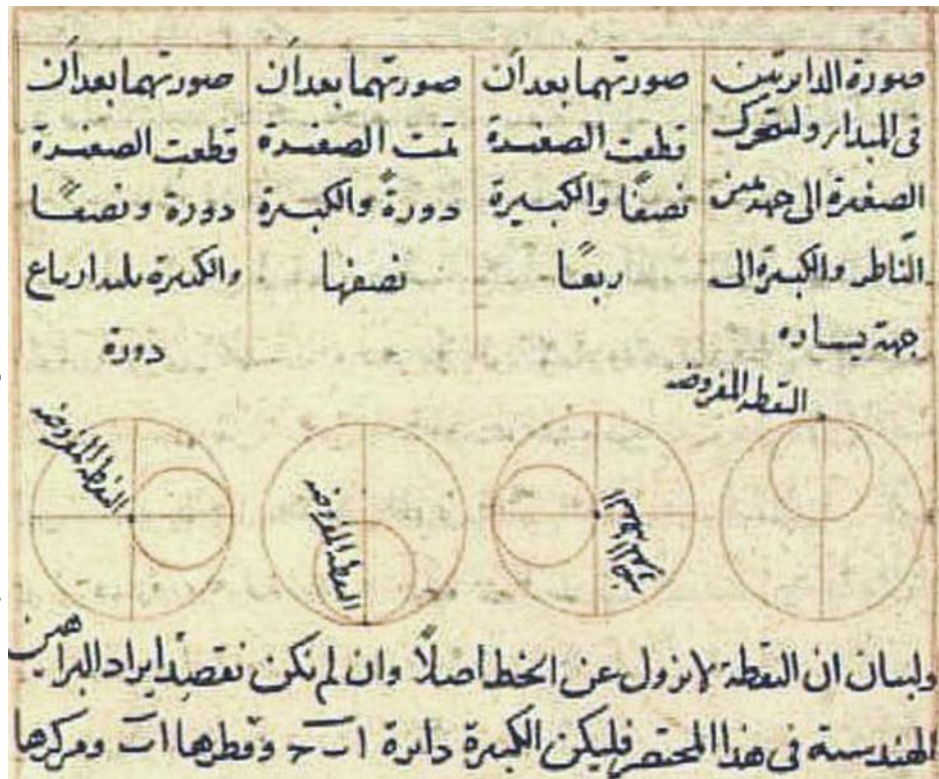 صورة الدايرتين
فى المبدا ولتتحرك
الصغيرة الى جهة يمين
الناظر والكبيرة الى
جهة يساره
صورتهما بعد ان
قطعت الصغيرة
نصفًا والكبيرة
ربعًا
صورتهما بعد ان
تمت الصغيرة
دورةً والكبيرة
نصفها
صورتهما بعد ان
قطعت الصغيرة
دورة ونصفًا
والكبيرة ثلثة ارباع
دورة
النقطة المفروضه
النقطة المفروضه
النقطة المفروضه
ولبيان ان النقطة لا تزول عن الخط اصلًا وان لم نكن نقصد ايراد البراهين
الهندسية فى هذا المختصر فليكن الكبيرة دايرة ا ب ح وقطرها ا ب ومركزها